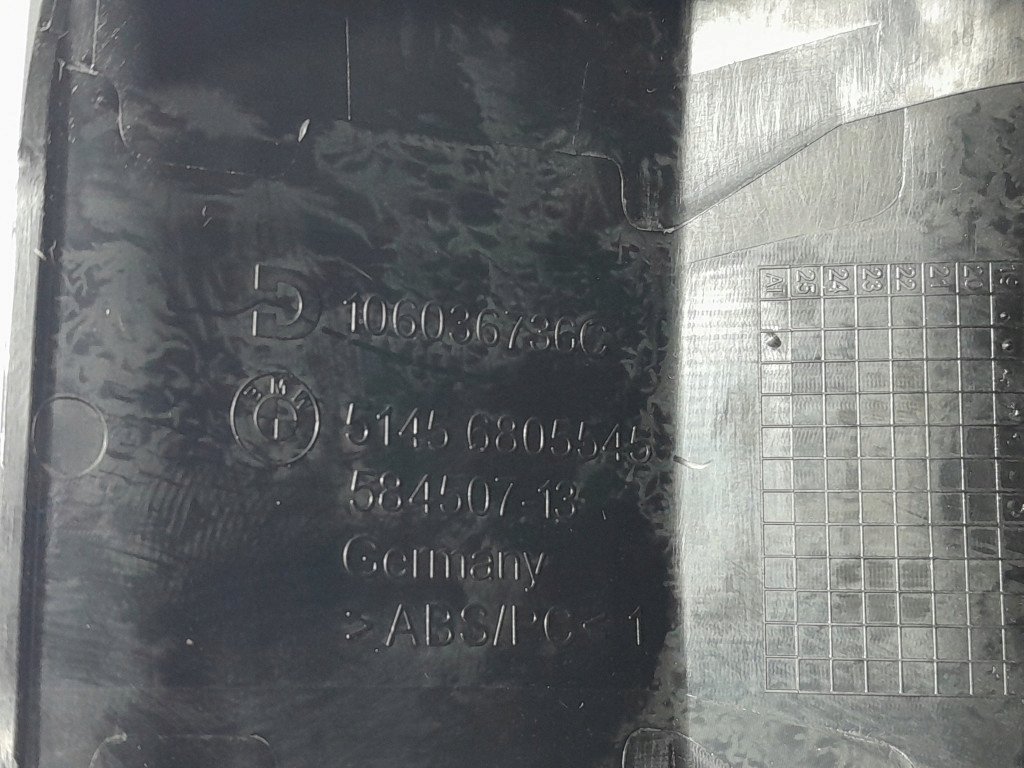 D 106036736C
BMW 5145 6805545
584507-13
Germany
>ABS/PC< 1
A1 25 24 23 22 21 20 19